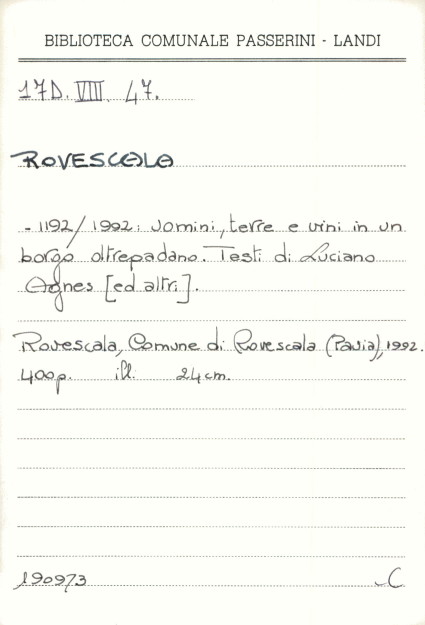 BIBLIOTECA COMUNALE PASSERINI - LANDI
17D. VIII. 47.
ROVESCALA
- 1192/1992: uomini, terre e vini in un
borgo oltrepadano. Testi di Luciano
Agnes [ed altri].
Rovescala, Comune di Rovescala (Pavia), 1992.
400p. ill. 24cm.
190973 C